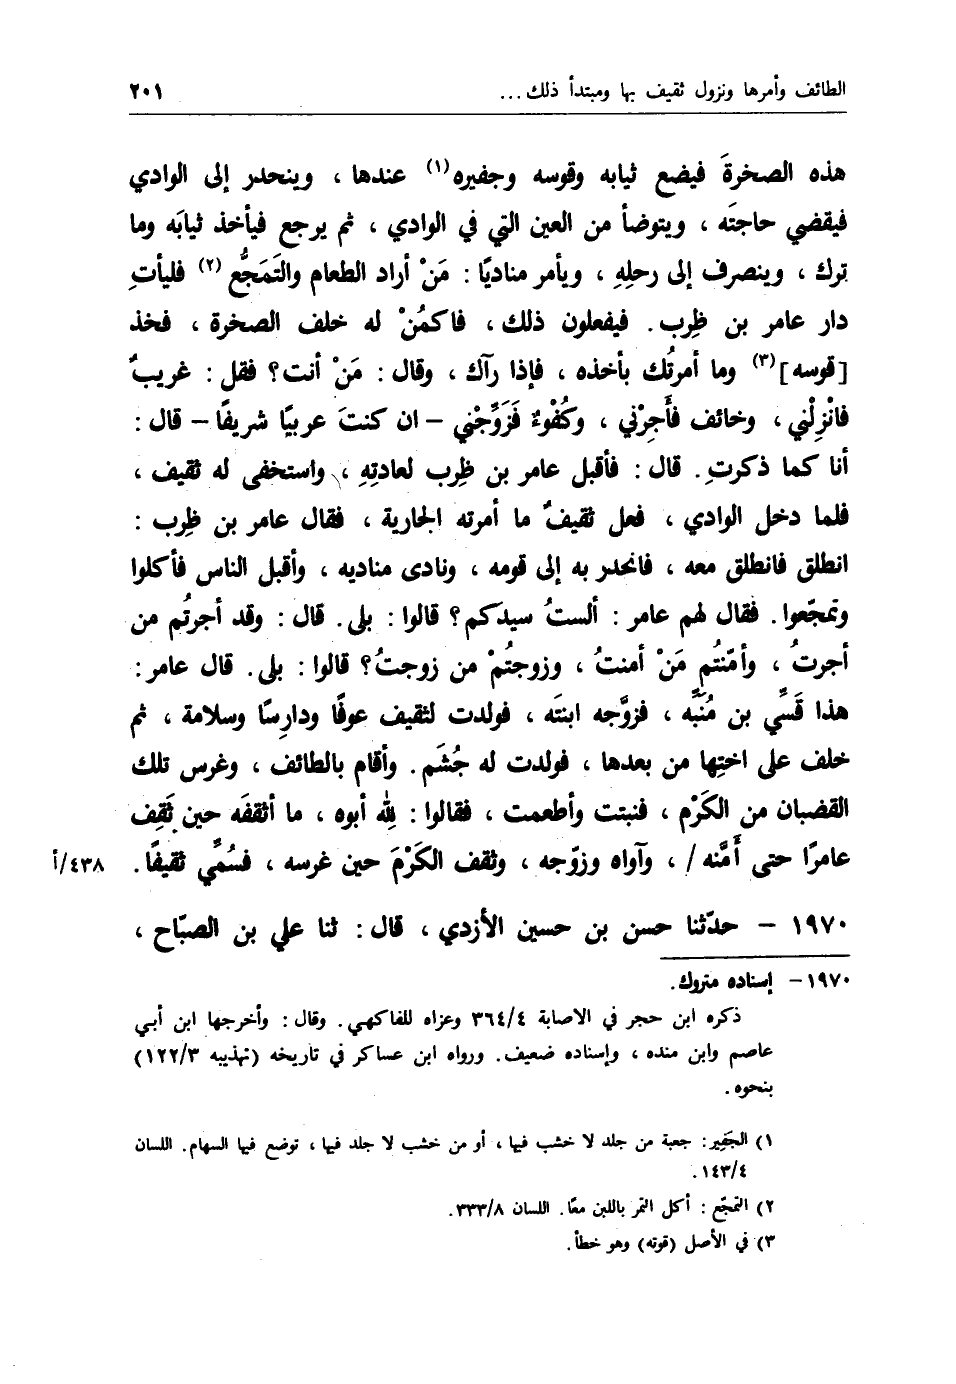 الطائف وأمرها ونزول ثقيف بها ومبتدأ ذلك ... ٢٠١
هذه الصخرةَ فيضع ثيابه وقوسه وجفيره(١) عندها ، وينحدر إلى الوادي
فيقضي حاجتَه ، ويتوضأ من العين التي في الوادي ، ثم يرجع فيأخذ ثيابَه وما
ترك ، وينصرف إلى رحلِهِ ، ويأمر مناديًا : مَنْ أراد الطعام والتَمَجُّع(٢) فليأتِ
دار عامر بن ظِرب. فيفعلون ذلك ، فاكمُنْ له خلف الصخرة ، فخذ
[قوسه](٣) وما أمرتُك بأخذه ، فإذا رآك ، وقال : مَنْ أنت؟ فقل : غريبٌ
فانْزِلْني ، وخائف فأَجِرْني ، وكُفْوءٌ فَزَوِّجْني – ان كنتَ عربيًا شريفًا – قال :
أنا كما ذكرتِ. قال : فأقبل عامر بن ظِرب لعادتِهِ ، واستخفى له ثقيف ،
فلما دخل الوادي ، فعل ثقيفٌ ما أمرته الجارية ، فقال عامر بن ظِرب :
انطلق فانطلق معه ، فانحدر به إلى قومه ، ونادى مناديه ، وأقبل الناس فأكلوا
وتمجّعوا. فقال لهم عامر : ألستُ سيدكم؟ قالوا : بلى. قال : وقد أجرتُم من
أجرتُ ، وأمّنتُم مَنْ أمنتُ ، وزوجتُمْ من زوجتُ؟ قالوا : بلى. قال عامر :
هذا قَسِّي بن مُنَبِّه ، فزوَّجه ابنتَه ، فولدت لثقيف عوفًا ودارِسًا وسلامة ، ثم
خلف على اختِها من بعدها ، فولدت له جُشَم. وأقام بالطائف ، وغرس تلك
القضبان من الكَرْم ، فنبتت وأطعمت ، فقالوا : لله أبوه ، ما أثقفَه حين ثَقِف
عامرًا حتى أَمَّنه / ، وآواه وزوّجه ، وثقف الكَرْمَ حين غرسه ، فسُمِّي ثقيفًا. ٤٣٨/أ
١٩٧٠ – حدّثنا حسن بن حسين الأزدي ، قال : ثنا علي بن الصبّاح ،
١٩٧٠– إسناده متروك.
ذكره ابن حجر في الاصابة ٣٦٤/٤ وعزاه للفاكهي. وقال : وأخرجها ابن أبي
عاصم وابن منده ، وإسناده ضعيف. ورواه ابن عساكر في تاريخه (تهذيبه ١٢٢/٣)
بنحوه.
١) الجَفِير : جعبة من جلد لا خشب فيها ، أو من خشب لا جلد فيها ، توضع فيها السهام. اللسان
١٤٣/٤.
٢) التمجّع : أكل التمر باللبن معًا. اللسان ٣٣٣/٨.
٣) في الأصل (قوته) وهو خطأ.